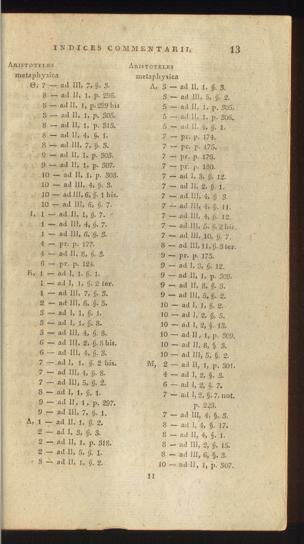 INDICES COMMENTARII. 13
ARISTOTELES
metaphysica
Θ, 7 — ad III, 7. §. 3.
8 — ad II, 1. p. 296.
8 — ad II, 1, p. 299 bis
8 — ad II, 1. p. 305.
8 — ad II, 1. p. 313.
8 — ad II, 4. §. 1.
8 — ad III, 7. §. 3.
9 — ad II, 1. p. 303.
9 — ad II, 1. p. 307.
10 — ad II, 1. p. 303.
10 — ad III, 4. §. 3.
10 — ad III, 6. §. 1 bis.
10 — ad III, 6. §. 7.
I, 1 — ad II, 1, §. 7.
1 — ad III, 4. §. 7.
1 — ad III, 6. §. 3.
4 — pr. p. 177.
4 — ad II, 3, §. 3.
6 — pr. p. 124.
K, 1 — ad I, 1. §. 1.
1 — ad I, 1, §. 2 ter.
1 — ad III, 7. §. 3.
2 — ad III, 6. §. 5.
3 — ad I, 1, §. 1.
3 — ad I, 1, §. 3.
3 — ad III, 4. §. 3.
6 — ad III, 2. §. 8 bis.
6 — ad III, 4. §. 3.
7 — ad I, 1. §. 2 bis.
7 — ad III, 4. §. 3.
7 — ad III, 5. §. 2.
8 — ad I, 1. §. 1.
9 — ad II, 1. p. 297.
9 — ad III, 7. §. 1.
Λ, 1 — ad II, 1. §. 2.
2 — ad I, 3. §. 3.
2 — ad II, 1. p. 318.
2 — ad II, 5. §. 1.
3 — ad II, 1. §. 2.
ARISTOTELES
metaphysica
Λ, 3 — ad II, 1. §. 3.
3 — ad III, 5, §. 2.
5 — ad II, 1. p. 305.
5 — ad II, 1. p. 306.
5 — ad II, 4, §. 1.
7 — pr. p. 174.
7 — pr. p. 175.
7 — pr. p. 176.
7 — pr. p. 180.
7 — ad I, 3, §. 12.
7 — ad II, 2. §. 1.
7 — ad III, 4. §. 3.
7 — ad III, 4. §. 11.
7 — ad III, 4. §. 12.
7 — ad III, 5. §. 2 bis.
7 — ad III, 10. §. 7.
8 — ad III, 11. §. 3 ter.
9 — pr. p. 175.
9 — ad I, 3, §. 12.
9 — ad II, 1, p. 309.
9 — ad II, 8, §. 3.
9 — ad III, 5, §. 2.
10 — ad I, 1, §. 2.
10 — ad I, 2. §. 5.
10 — ad I, 2, §. 13.
10 — ad II, 1, p. 309.
10 — ad II, 8, §. 3.
10 — ad III, 5, §. 2.
M, 2 — ad II, 1, p. 301.
4 — ad I, 2, §. 3.
6 — ad I, 2, §. 7.
7 — ad I, 2, §. 7. not.
p. 223.
7 — ad III, 4, §. 3.
8 — ad I, 4, §. 17.
8 — ad II, 4, §. 1.
8 — ad III, 2, §. 15.
8 — ad III, 6, §. 3.
10 — ad II, 1, p. 307.